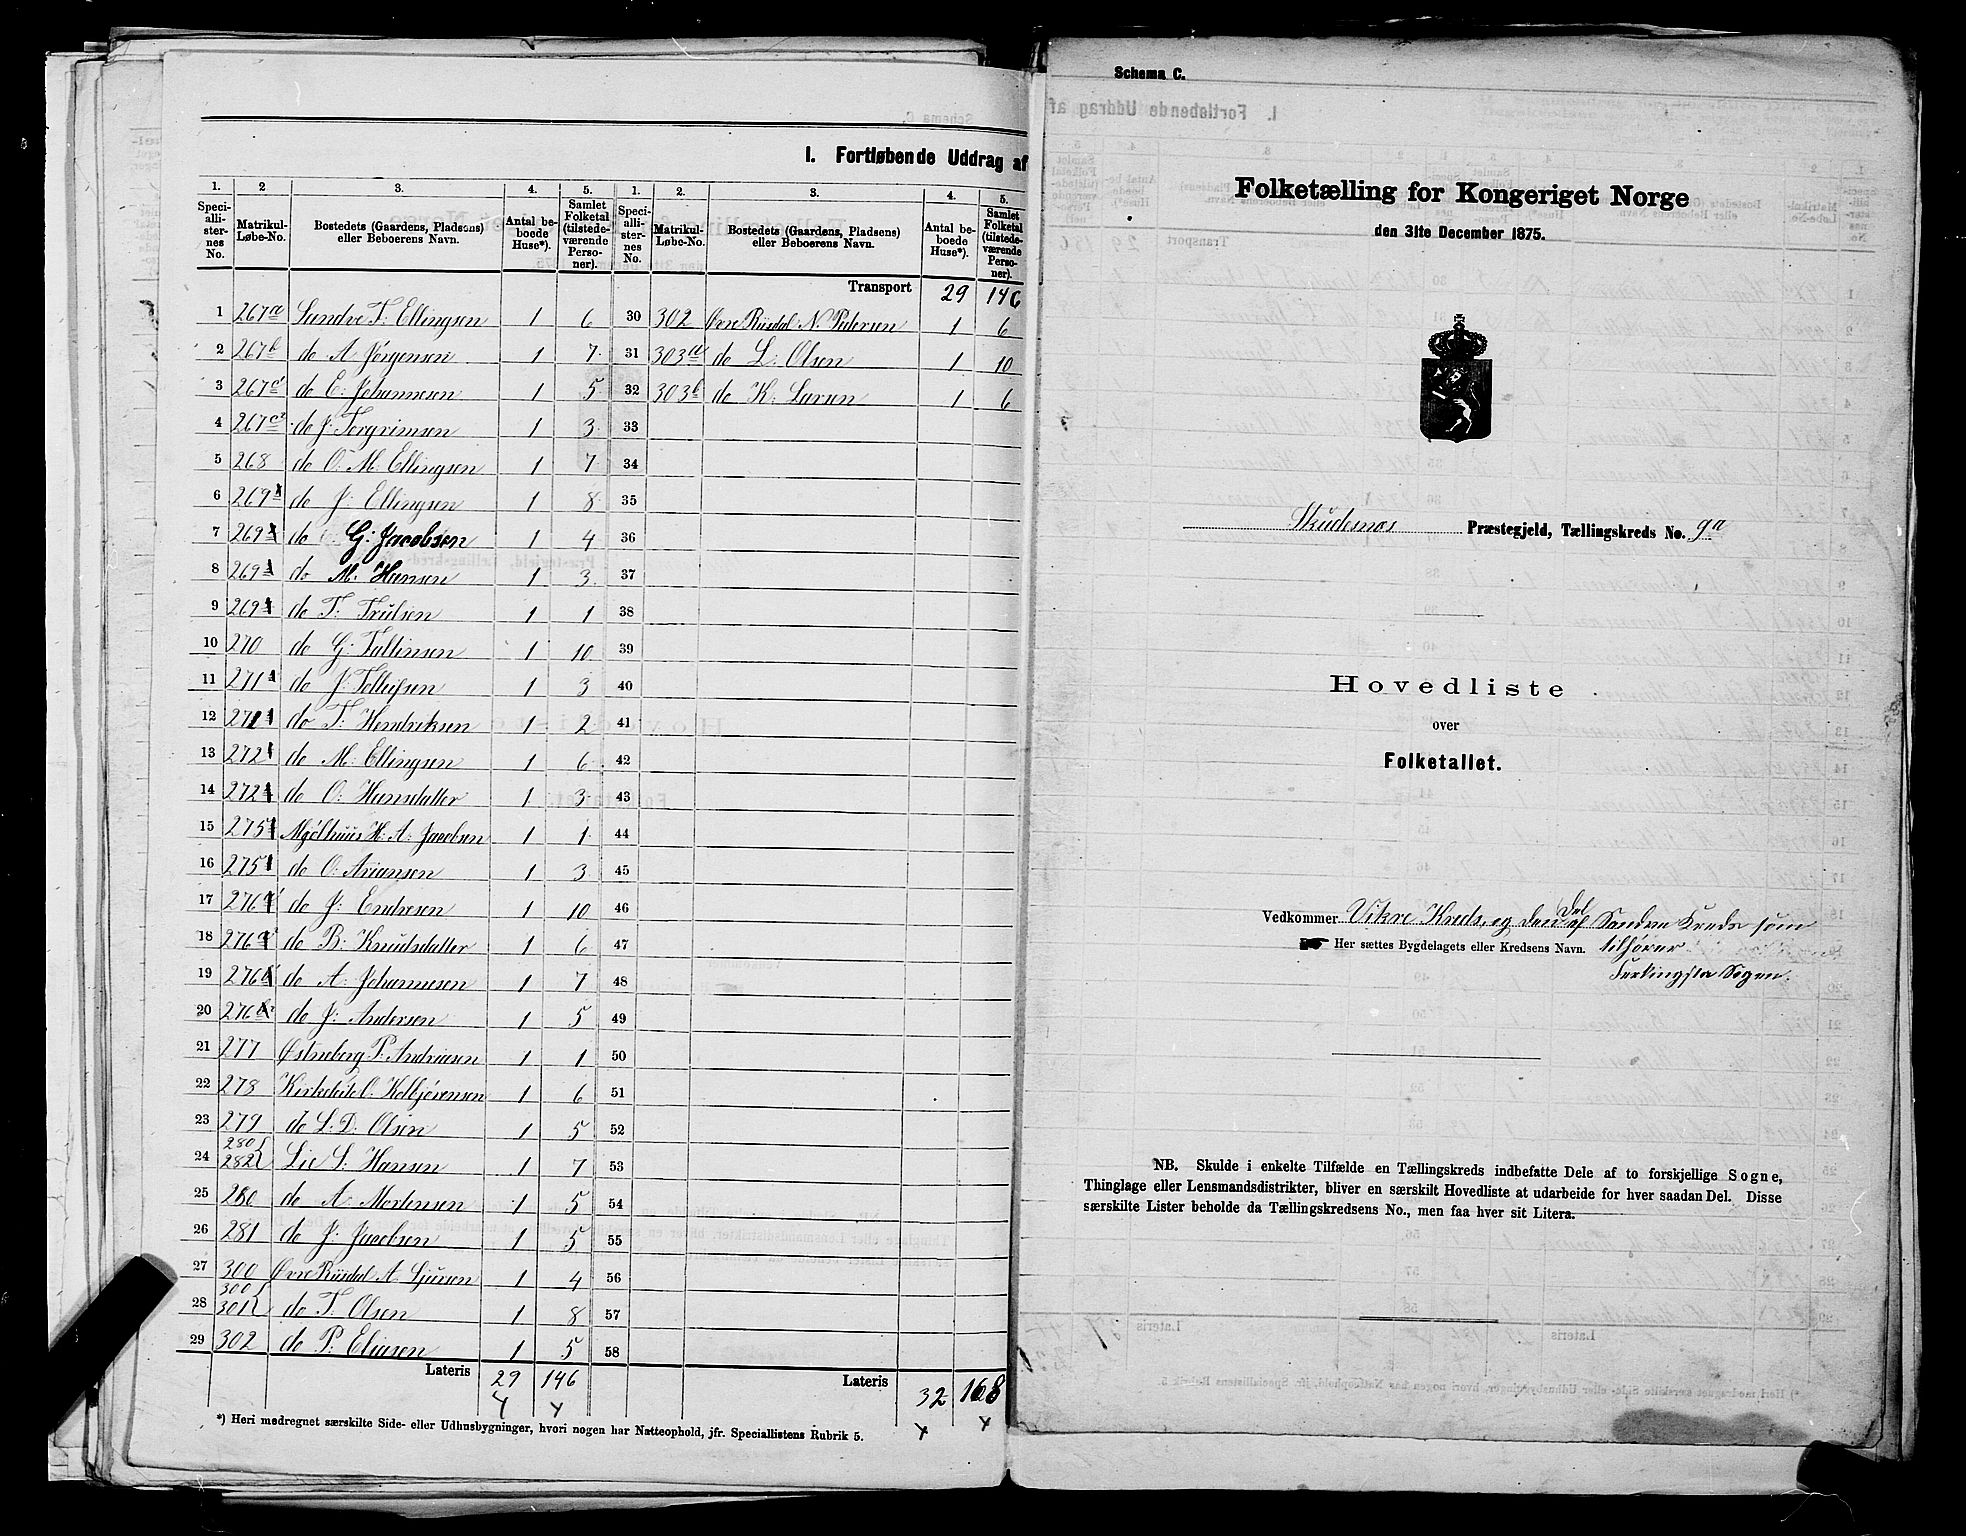 I. Fortløbende Uddrag af
1. 2 3. 4. 5. 1. 2. 3. 4. 5.
Speciallisternes No. Matrikul-Løbe-No. Bostedets (Gaardens, Pladsens) eller Beboerens Navn. Antal beboede Huse*). Samlet Folketal (tilstedeværende Personer). Speciallisternes No. Matrikul-Løbe-No. Bostedets (Gaardens, Pladsens) eller Beboerens Navn. Antal beboede Huse*). Samlet Folketal (tilstedeværende Personer).
Transport 29 146
1 267a Sundve T. Ellingsen 1 6 30 302 Øvre Rusdal N. Pedersen 1 6
2 267b do A Jørgensen 1 7 31 303a do L. Olsen 1 10
3 267c1 do E: Johannesen 1 5 32 303b do K. Larsen 1 6
4 267c2 do J: Torgrimsen 1 3 33
5 268 do O. M. Ellingsen 1 7 34
6 269 do J: Ellingsen 1 8 35
7 269 do G: Jacobsen 1 4 36
8 269 do M. Hansen 1 3 37
9 269 do T. Trulsen 1 1 38
10 270 do G: 1 10 39
11 271 do J. Tollefsen 1 3 40
12 271 do T. Hendriksen 1 2 41
13 272 do M. Ellingsen 1 6 42
14 272 do O: Hansdatter 1 3 43
15 275 Mjølhuus H. A. Jacobsen 1 1 44
16 275 do O. Ariansen 1 3 45
17 276 do J: Endresen 1 10 46
18 276 do B: Knudsdatter 1 6 47
19 276 do A. Johannesen 1 7 48
20 276 do J: Andersen 1 5 49
21 277 Østneberg P. Andreasen 1 1 50
22 278 Kirkeleite O. Kolbjørensen 1 6 51
23 279 do L. D. Olsen 1 5 52
24 280 282 Lie S. Hansen 1 7 53
25 280 do A. Mortensen 1 5 54
26 281 do J: Jacobsen 1 5 55
27 300 Øvre Rusdal A 1 4 56
28 300 301 do T. Olsen 1 8 57
29 302 do P. Eliasen 1 5 58
Lateris 29 146 Lateris 32 168
*) Heri medregnet særskilte Side- eller Udhusbygninger, hvori nogen har Natteophold, jfr. Speciallistens Rubrik 5.
Schema C.
Folketælling for Kongeriget Norge
den 31te December 1875.
Skudenes Præstegjeld, Tællingskreds No. 9a
Hovedliste
over
Folketallet.
Vedkommer Vikre Kreds, og den Del af Sandve Kreds som
Her sættes Bygdelagets eller Kredsens Navn. tilhører
Ferkingstad Sogn.
NB. Skulde i enkelte Tilfælde en Tællingskreds indbefatte Dele af to forskjellige Sogne,
Thinglage eller Lensmandsdistrikter, bliver en særskilt Hovedliste at udarbeide for hver saadan Del. Disse
særskilte Lister beholde da Tællingskredsens No., men faa hver sit Litera.